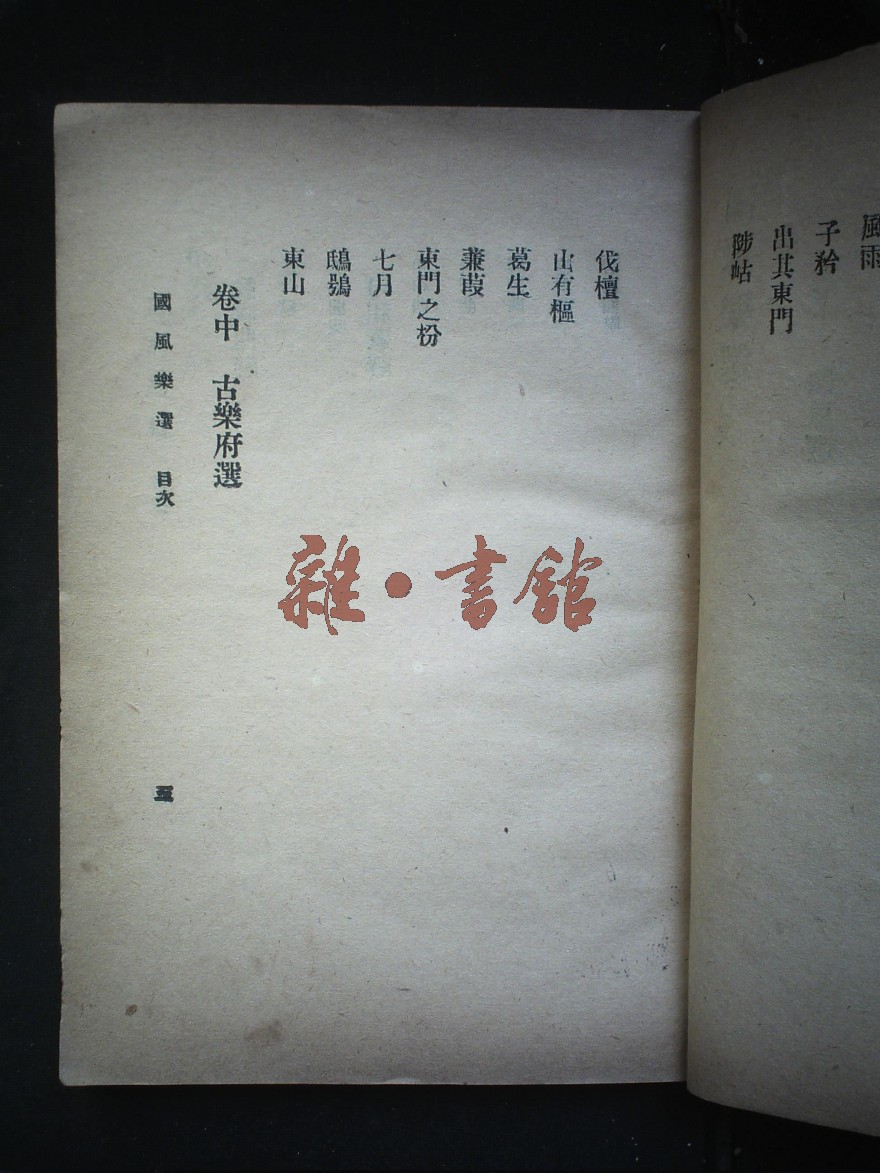 風雨
子矜
出其東門
陟岵
伐檀
山有樞
葛生
蒹葭
東門之枌
七月
鴟鴞
東山
卷中 古樂府選
國風樂選 目次
五
雜·書館